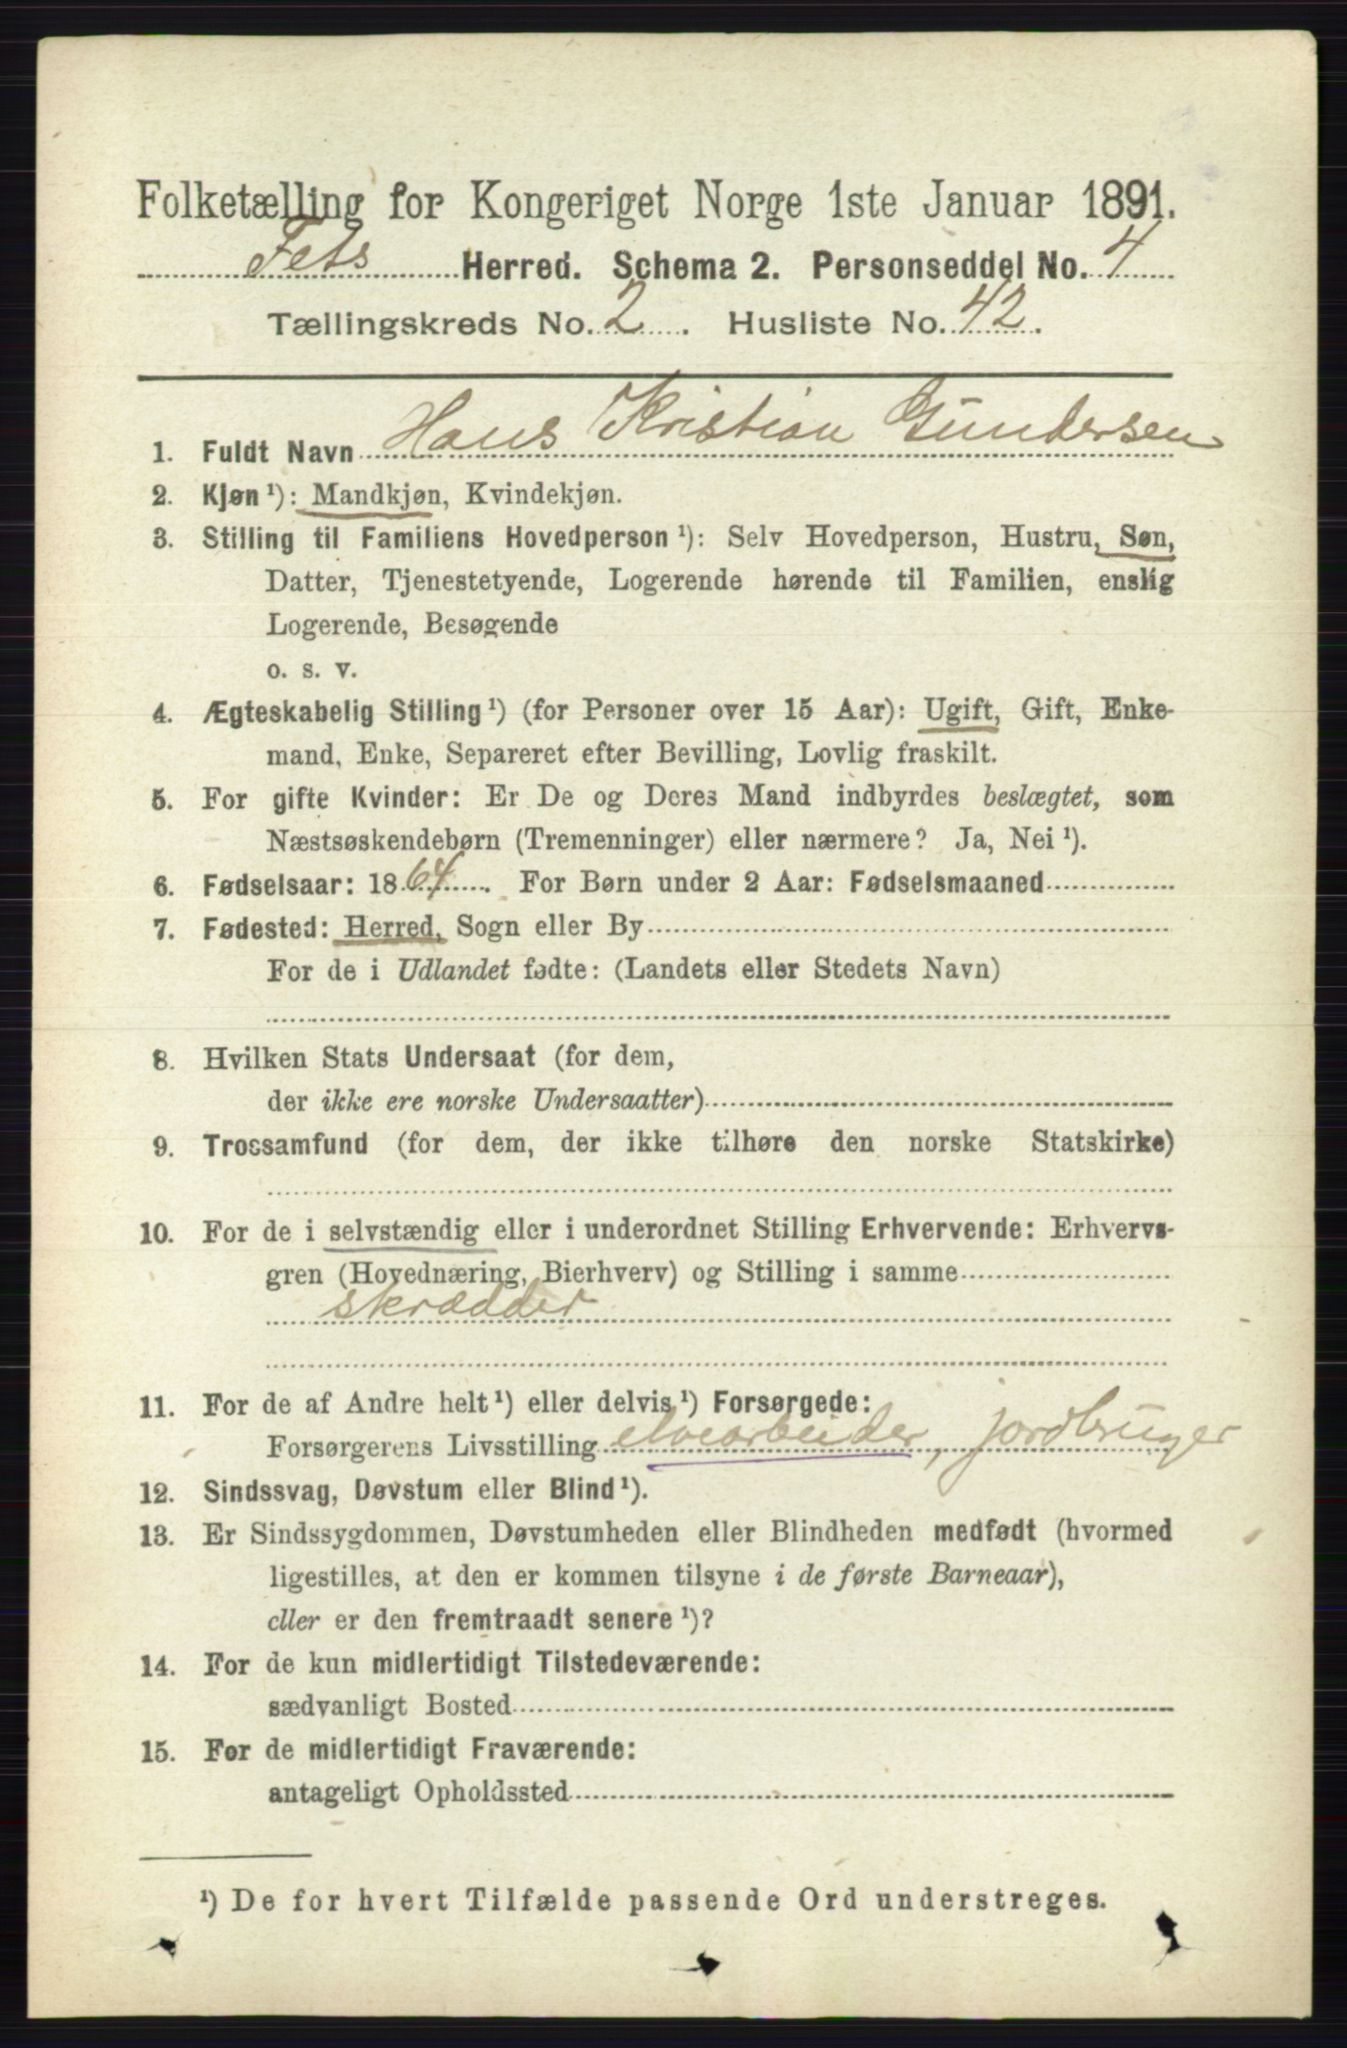 Folketælling for Kongeriget Norge 1ste Januar 1891.
Fets Herred. Schema 2. Personseddel No. 4
Tællingskreds No. 2. Husliste No. 42.
1. Fuldt Navn Hans Kristian Gundersen
2. Kjøn ¹): Mandkjøn, Kvindekjøn.
3. Stilling til Familiens Hovedperson ¹): Selv Hovedperson, Hustru, Søn,
Datter, Tjenestetyende, Logerende hørende til Familien, enslig
Logerende, Besøgende
o. s. v.
4. Ægteskabelig Stilling ¹) (for Personer over 15 Aar): Ugift, Gift, Enke-
mand, Enke, Separeret efter Bevilling, Lovlig fraskilt.
5. For gifte Kvinder: Er De og Deres Mand indbyrdes beslægtet, som
Næstsøskendebørn (Tremenninger) eller nærmere? Ja, Nei ¹).
6. Fødselsaar: 1864. For Børn under 2 Aar: Fødselsmaaned
7. Fødested: Herred, Sogn eller By
For de i Udlandet fødte: (Landets eller Stedets Navn)
8. Hvilken Stats Undersaat (for dem,
der ikke ere norske Undersaatter)
9. Trossamfund (for dem, der ikke tilhøre den norske Statskirke)
10. For de i selvstændig eller i underordnet Stilling Erhvervende: Erhvervs-
gren (Hovednæring, Bierhverv) og Stilling i samme
skrædder
11. For de af Andre helt ¹) eller delvis ¹) Forsørgede:
Forsørgerens Livsstilling elvearbeider, jordbruger
12. Sindssvag, Døvstum eller Blind ¹).
13. Er Sindssygdommen, Døvstumheden eller Blindheden medfødt (hvormed
ligestilles, at den er kommen tilsyne i de første Barneaar),
eller er den fremtraadt senere ¹)?
14. For de kun midlertidigt Tilstedeværende:
sædvanligt Bosted
15. For de midlertidigt Fraværende:
antageligt Opholdssted
¹) De for hvert Tilfælde passende Ord understreges.